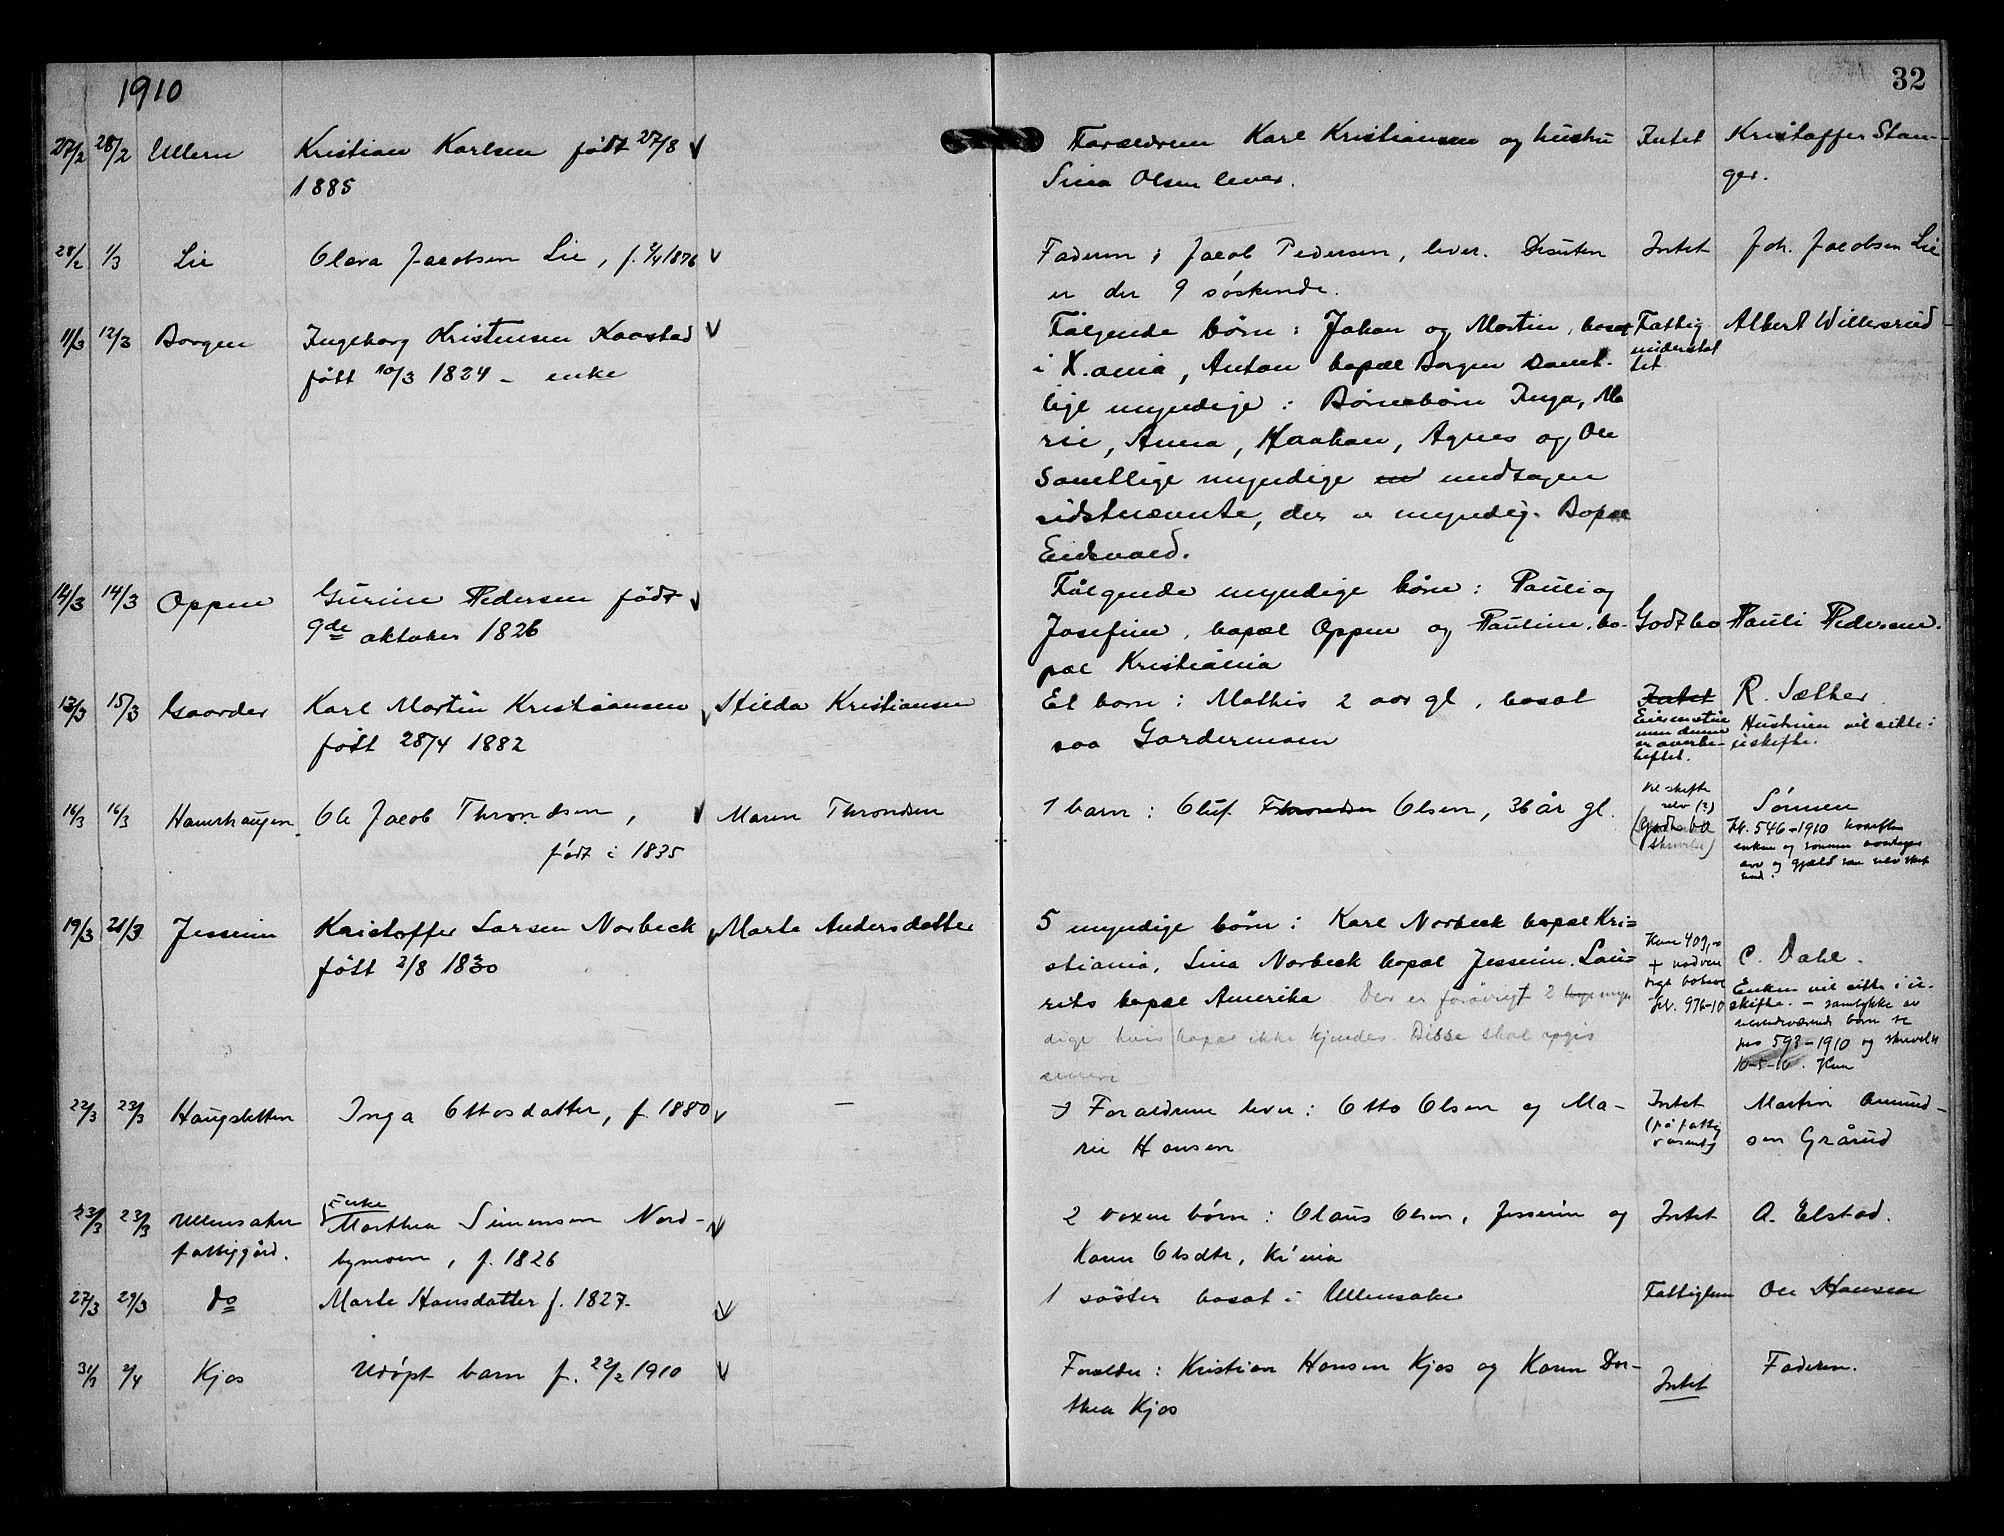 1910
32
27/2 28/2 Ullern Kristian Karlsen født 27/8 Forældrene Karl Kristiansen og hustru Intet Kristoffer Stan-
1885 Lina Olsen lever. ger.
28/2 1/3 Lie Olava Jacobsen Lie, f. 2/4 1876 Faderen: Jacob Pedersen, lever. Desuten Intet Joh. Jacobsen Lie
er der 9 søskende.
11/3 12/3 Borgen Ingeborg Kristensen Kaastad Følgende børn: Johan og Martin, bosat Fattig Albert Willersrud
født 10/3 1824 - enke i X.ania, Anton bopæl Borgen samt- understøt
lige myndige: Børnebørn Inga, Ma tet
rie, Anna, Haakan, Agnes og Ole
samtlige myndige undtagen
sidstnævnte, der er myndig. Bopæl
Eidsvold.
14/3 14/3 Oppen Gurine Pedersen født Følgende myndige børn: Pauli og
9de oktober 1826 Josefine, bopæl Oppen og Pauline, bo- Godt bo Pauli Pedersen.
pæl Kristiania
13/3 15/3 Gaarder Karl Martin Kristiansen Hilda Kristiansen Et barn: Mathis 2 aar gl, bosat Intet R. Sæther
født 28/4 1882 paa Gardermoen Eiendom men denne er overbe- heftet. Hustruen vil sitte i
uskifte.
16/3 16/3 Haverhaugen Ole Jacob Throndsen, Maren Throndsen 1 barn: Oluf Throndsen Olsen, 36 år gl. Vil skifte selv (?) Sønnen
født i 1835 (Godt bo skrivelse) Jr. 546-1910 hvorefter
enken og sønnen overtager
arv og gjæld som selvskift
19/3 21/3 Jesseim Kristoffer Larsen Norbeck Marte Andersdatter 5 myndige børn: Karl Norbeck bopæl Kri-
født 2/8 1830 stiania, Lina Norbeck bopæl Jesseim. Lau- + nødven C. Dahl.
rits bopæl Amerika Der er forøvrigt 2 myn Jr. 976-10 Enken vil sitte i u-
dige hvis bopæl ikke kjendes. Disse skal opgis skifte. - samtykke av
senere nærværende børn se
jno 593-1910 og skrivelse
10-5-10.
22/3 23/3 Haugsletten Inga Ottosdatter, f. 1880 - Forældrene lever: Otto Olsen og Ma- Intet Martin Amund-
rie Hansen (på fattig væsenet) sen Grårud
23/3 23/3 Ullensaker Enke Marthea Simensen Nord- 2 voxne børn: Olaus Olsen, Jesseim og Intet A. Elstad.
fattiggård. bymoen, f. 1826 Karen Olsdtr, Kr'nia
27/3 29/3 do Marte Hansdatter f. 1827. 1 søster bosat i Ullensaker Fattiglem Ole Hansen
31/3 2/4 Kjos Udøpt barn f. 22/2 1910 Forældre: Kristian Hansen Kjos og Karen Dor- Intet Faderen.
thea Kjos